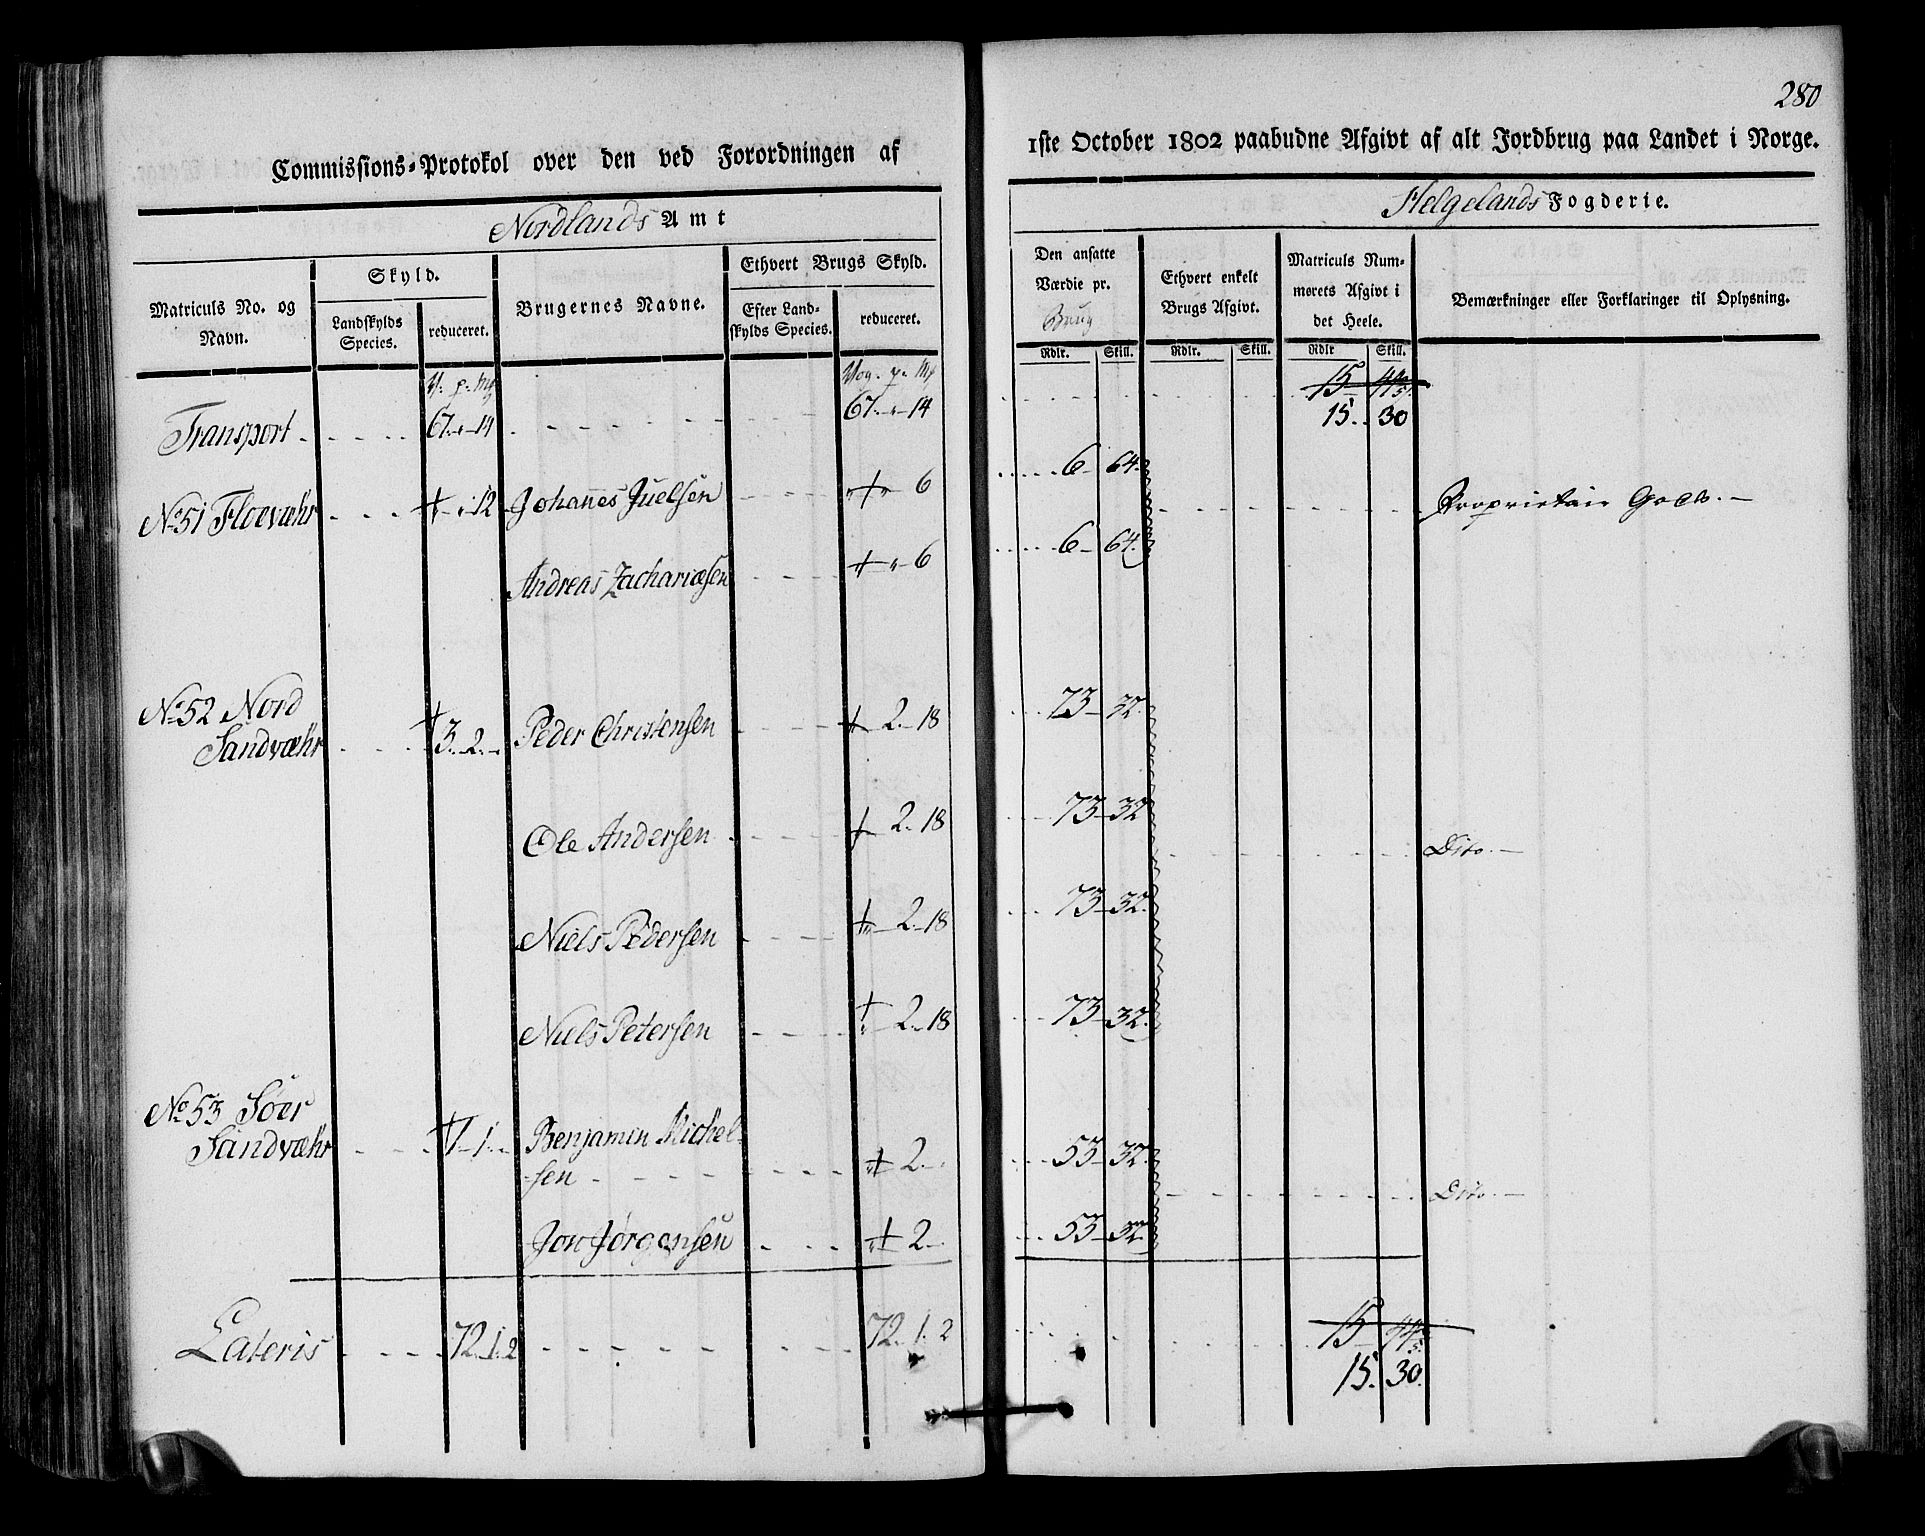 280
Commissions-Protokol over den ved Forordningen af
1ste October 1802 paabudne Afgivt af alt Jordbrug paa Landet i Norge.
Nordlands Amt
Helgelands Fogderie.
Matriculs No. og Navn.
Skyld.
Landskylds Species.
reduceret.
Brugernes Navne.
Ethvert Brugs Skyld.
Efter Land-
skylds Species.
reduceret.
Den ansatte
Værdie pr.
Brug
Ethvert enkelt
Brugs Afgivt.
Matriculs Num-
merets Afgivt i
det Heele.
Bemærkninger eller Forklaringer til Oplysning.
Rdlr. Skill. Rdlr. Skill. Rdlr Skill.
V. p. Mk Vog. p. Mk
15 44
Transport 67. - 14 67. - 14 15. 30
No 51 Floevæhr - - 12 Johannes Juelsen - 6 6 64. Proprietair Gods.
Andreas Zachariæsen - 6 6 64.
No 52 Nord
Sandvæhr 3. 2. - Peder Christensen 2. 18 73 32.
Ole Andersen 2. 18 73 32 Dito.
Niels Pedersen 2. 18 73 32.
Niels Petersen 2. 18 73 32.
No 53 Söer
Sandvæhr 1. 1. - Benjamin Michel-
sen 2. 53 32. Dito.
Jon Jørgensen 2. 53 32.
Lateris 72. 1. 2 72. 1. 2 15 44
15. 30.